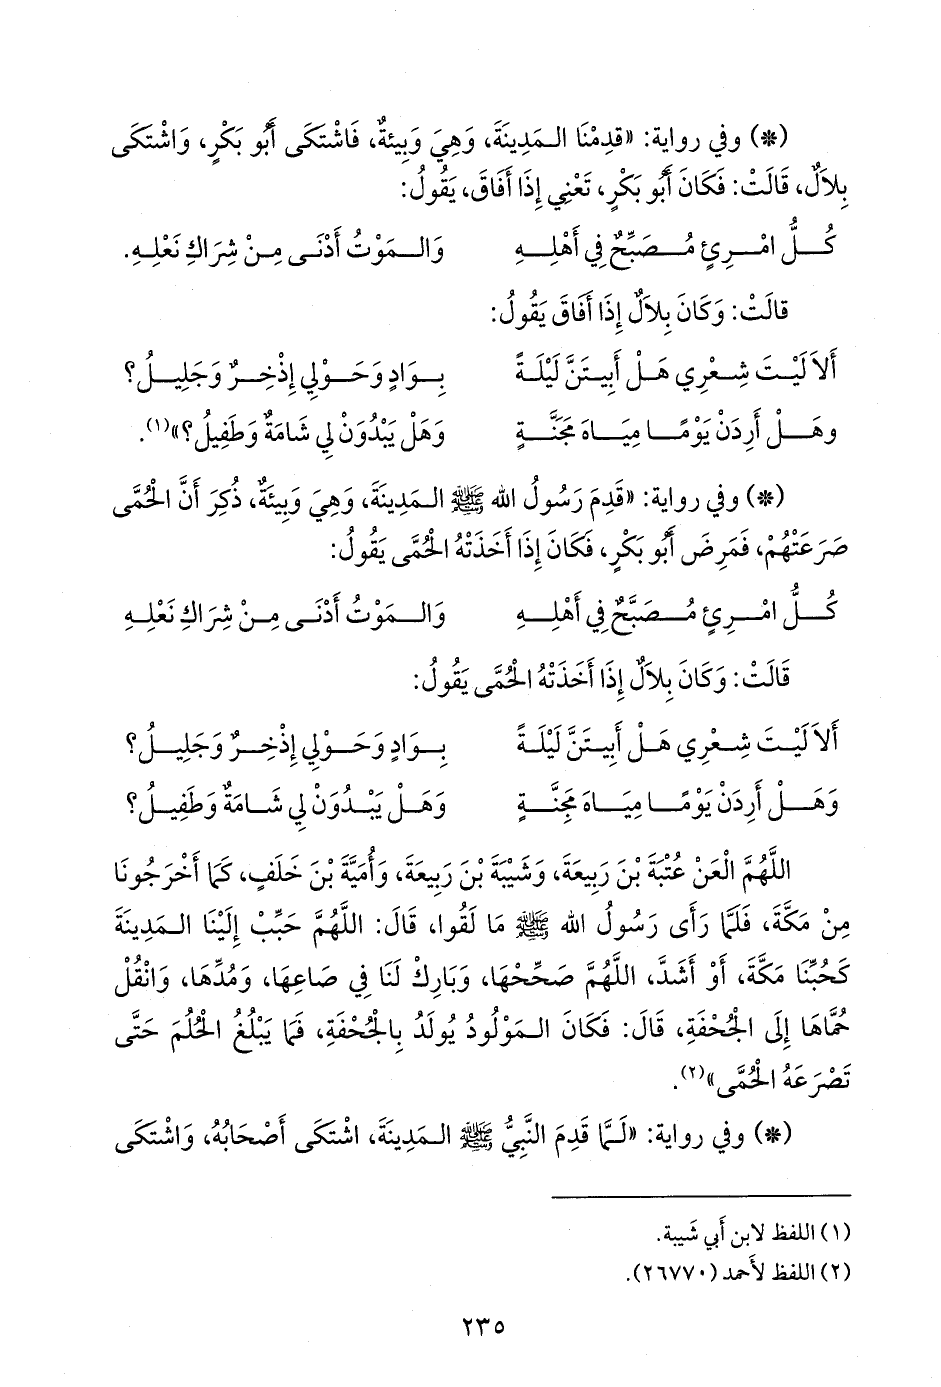 (*) وفي رواية: «قدِمْنَا الـمَدِينَةَ، وَهِيَ وَبِيئةٌ، فَاشْتَكَى أَبُو بَكْرٍ، وَاشْتَكَى
بِلاَلٌ، قَالَتْ: فَكَانَ أَبُو بَكْرٍ، تَعْنِي إِذَا أَفَاقَ، يَقُولُ:
كُلُّ امْرِئٍ مُصَبِّحٌ فِي أَهْلِهِ وَالـمَوْتُ أَدْنَى مِنْ شِرَاكِ نَعْلِهِ.
قالَتْ: وَكَانَ بِلاَلٌ إِذَا أَفَاقَ يَقُولُ:
أَلاَ لَيْتَ شِعْرِي هَلْ أَبِيتَنَّ لَيْلَةً بِوَادٍ وَحَوْلِي إِذْخِرٌ وَجَلِيلُ؟
وهَلْ أَرِدَنْ يَوْمًا مِيَاهَ مَجَنَّةٍ وَهَلْ يَبْدُوَنْ لِي شَامَةٌ وَطَفِيلُ؟»(١).
(*) وفي رواية: «قَدِمَ رَسُولُ الله ﷺ الـمَدِينَةَ، وَهِيَ وَبِيئَةٌ، ذُكِرَ أَنَّ الْحُمَّى
صَرَعَتْهُمْ، فَمَرِضَ أَبُو بَكْرٍ، فَكَانَ إِذَا أَخَذَتْهُ الْحُمَّى يَقُولُ:
كُلُّ امْرِئٍ مُصَبَّحٌ فِي أَهْلِهِ وَالـمَوْتُ أَدْنَى مِنْ شِرَاكِ نَعْلِهِ
قَالَتْ: وَكَانَ بِلاَلٌ إِذَا أَخَذَتْهُ الْحُمَّى يَقُولُ:
أَلاَ لَيْتَ شِعْرِي هَلْ أَبِيتَنَّ لَيْلَةً بِوَادٍ وَحَوْلِي إِذْخِرٌ وَجَلِيلُ؟
وَهَلْ أَرِدَنْ يَوْمًا مِيَاهَ مَجِنَّةٍ وَهَلْ يَبْدُوَنْ لِي شَامَةٌ وَطَفِيلُ؟
اللَّهُمَّ الْعَنْ عُتْبَةَ بْنَ رَبِيعَةَ، وَشَيْبَةَ بْنَ رَبِيعَةَ، وَأُمَيَّةَ بْنَ خَلَفٍ، كَمَا أَخْرَجُونَا
مِنْ مَكَّةَ، فَلَمَّا رَأَى رَسُولُ الله ﷺ مَا لَقُوا، قَالَ: اللَّهُمَّ حَبِّبْ إِلَيْنَا الـمَدِينَةَ
كَحُبِّنَا مَكَّةَ، أَوْ أَشَدَّ، اللَّهُمَّ صَحِّحْهَا، وَبَارِكْ لَنَا فِي صَاعِهَا، وَمُدِّهَا، وَانْقُلْ
حُمَّاهَا إِلَى الْجُحْفَةِ، قَالَ: فَكَانَ الـمَوْلُودُ يُولَدُ بِالْجُحْفَةِ، فَمَا يَبْلُغُ الْحُلُمَ حَتَّى
تَصْرَعَهُ الْحُمَّى»(٢).
(*) وفي رواية: «لَـمَّا قَدِمَ النَّبِيُّ ﷺ الـمَدِينَةَ، اشْتَكَى أَصْحَابُهُ، وَاشْتَكَى
(١) اللفظ لابن أَبي شَيبة.
(٢) اللفظ لأحمد (٢٦٧٧٠).
٢٣٥